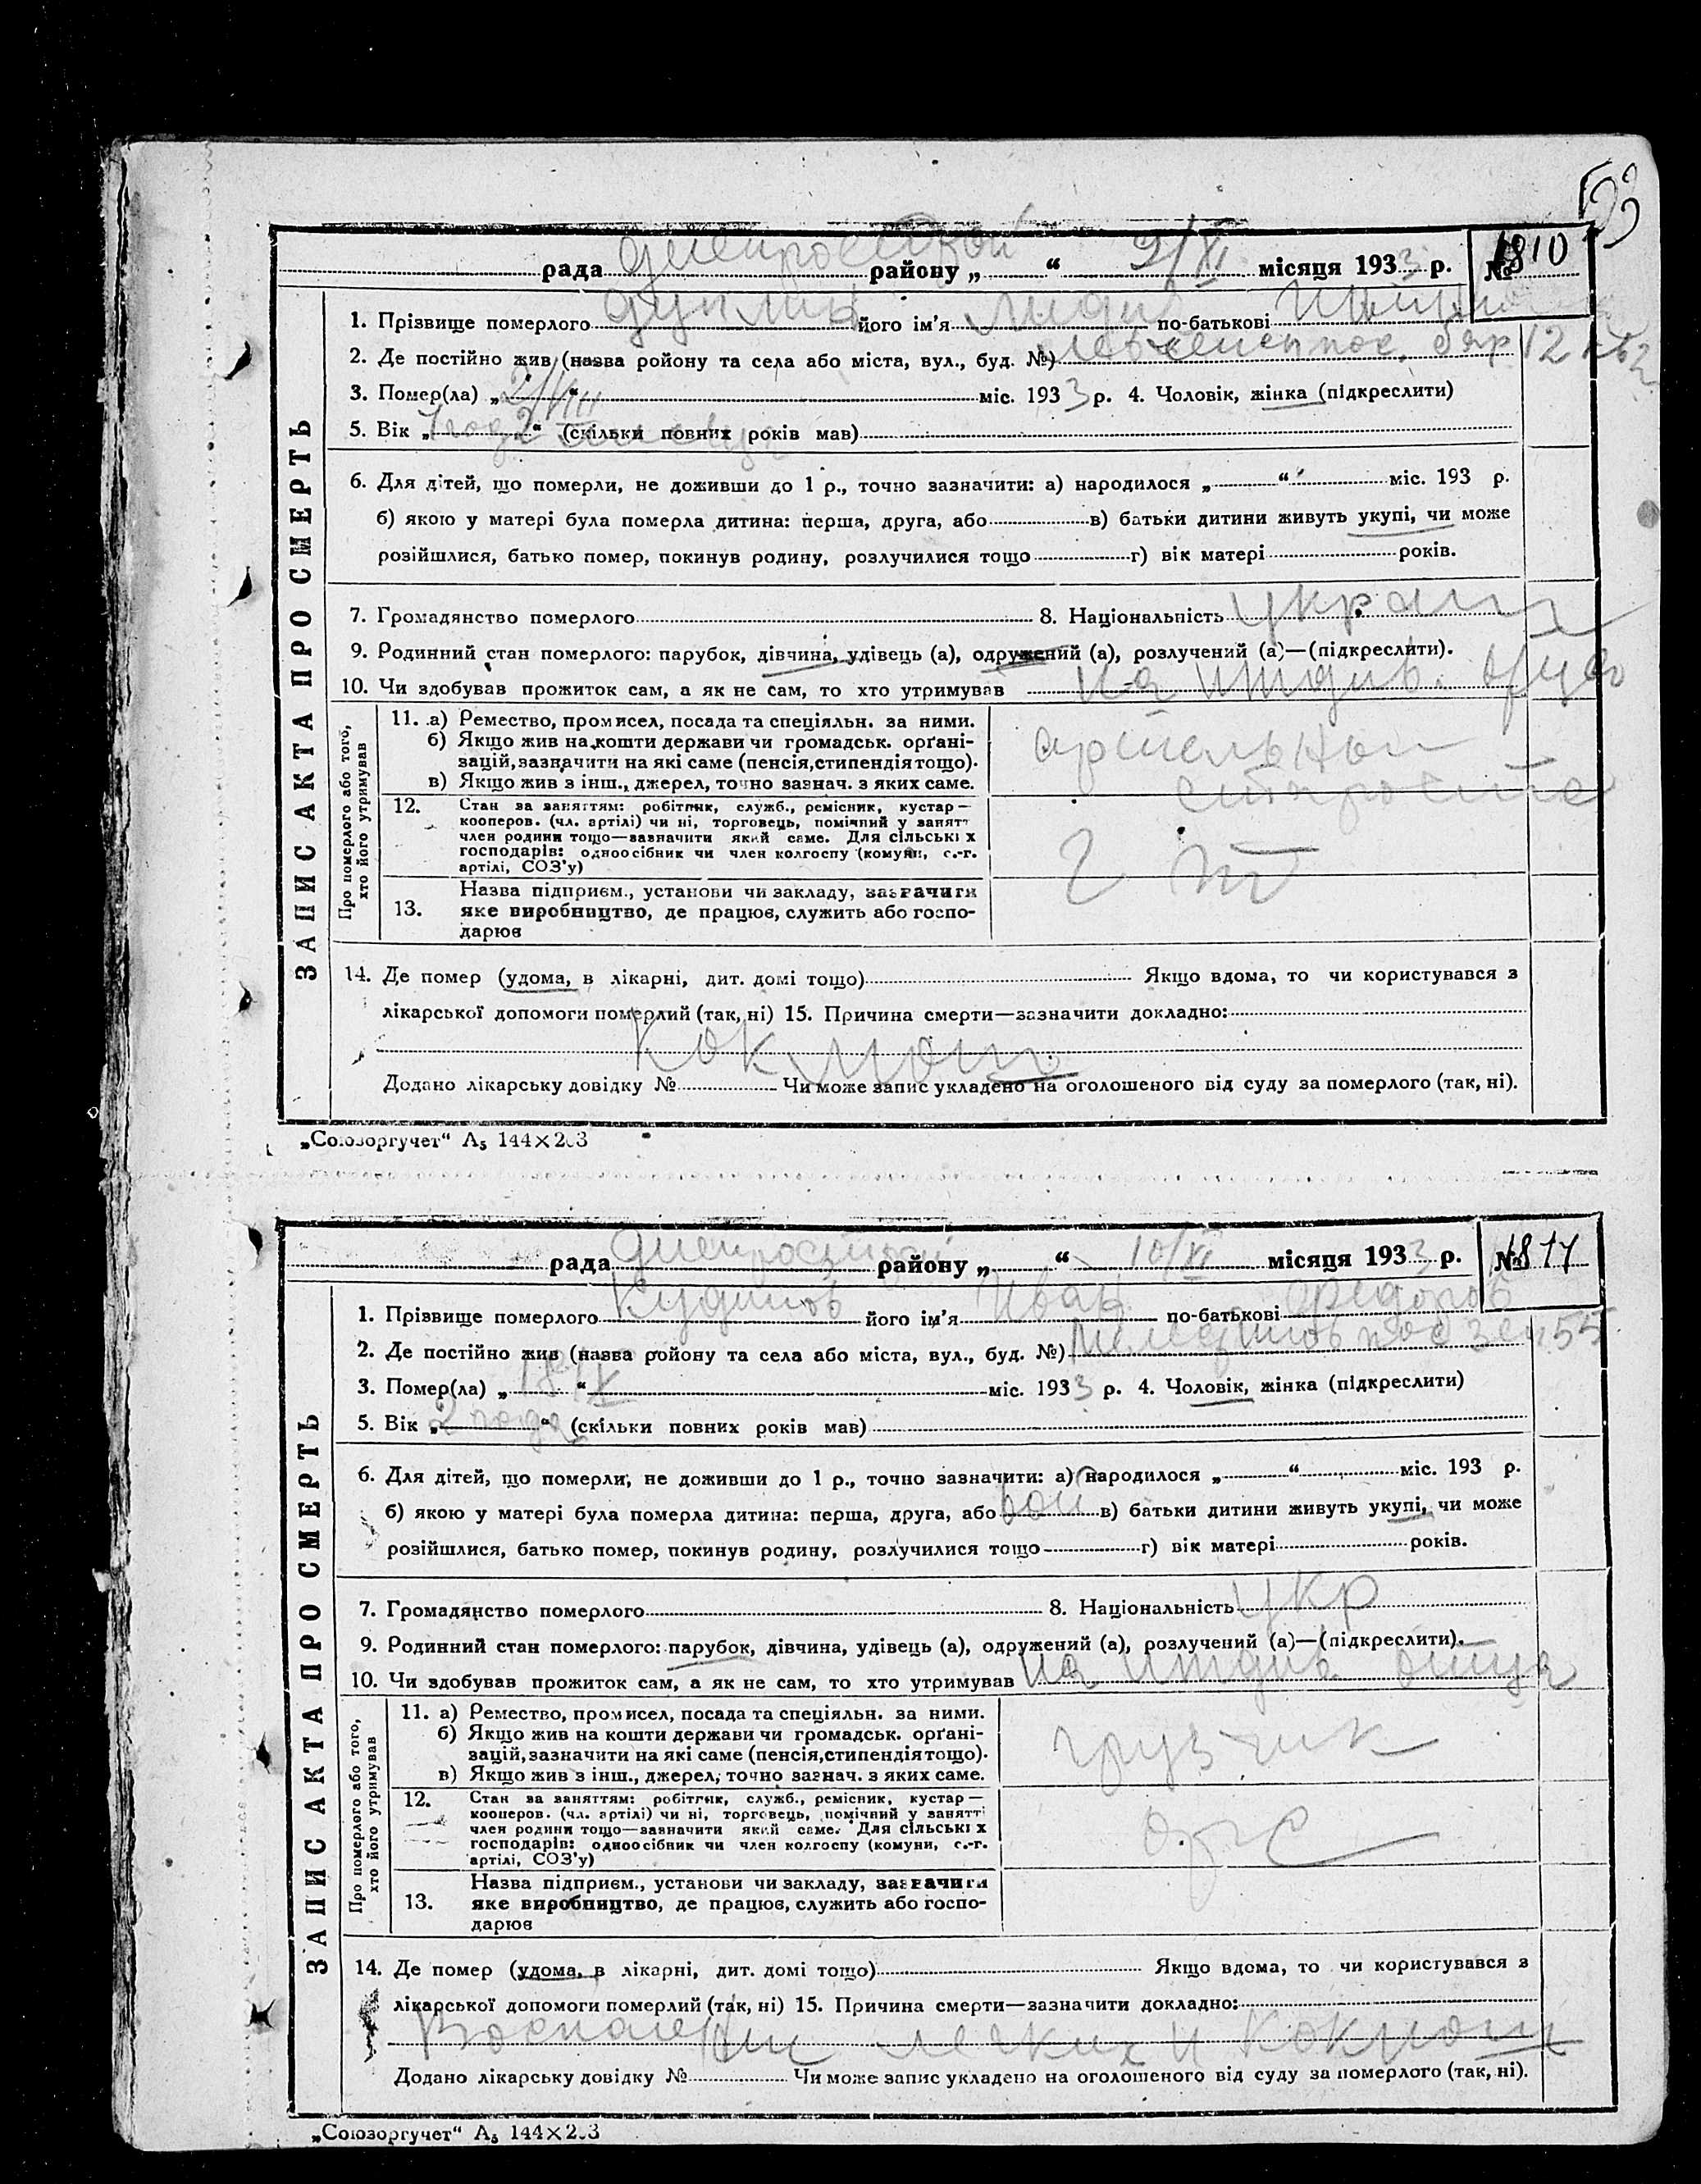 рада Днепрострой району „ “ 9/XI місяця 1933 р. № 1810
1. Прізвище померлого його ім'я Лидия по-батькові
2. Де постійно жив (назва ройону та села або міста, вул., буд. №) пос. бар 12 кв 2
3. Помер(ла) „2/VIII“ міс. 1933 р. 4. Чоловік, жінка (підкреслити)
5. Вік „1 год 2 месяца“ (скільки повних років мав)
6. Для дітей, що померли, не доживши до 1 р., точно зазначити: а) народилося „ “ міс. 193 р.
б) якою у матері була померла дитина: перша, друга, або в) батьки дитини живуть укупі, чи може
розійшлися, батько помер, покинув родину, розлучилися тощо г) вік матері років.
7. Громадянство померлого 8. Національність украин
9. Родинний стан померлого: парубок, дівчина, удівець (а), одружений (а), розлучений (а)—(підкреслити).
10. Чи здобував прожиток сам, а як не сам, то хто утримував на иждив. отца
ЗАПИС АКТА ПРО СМЕРТЬ
Про померлого або того, хто його утримував
11. а) Ремество, промисел, посада та спеціяльн. за ними.
б) Якщо жив на кошти держави чи громадськ. орґані-
зацій, зазначити на які саме (пенсія, стипендія тощо).
в) Якщо жив з інш., джерел, точно зазнач. з яких саме.
артельной
староста
12. Стан за заняттям: робітник, служб., ремісник, кустар—
кооперов. (чл. артілі) чи ні, торговець, помічний у занятт
член родини тощо—зазначити який саме. Для сільських
господарів: одноосібник чи член колгоспу (комуни, с.-г.
артілі, СОЗ'у)
13. Назва підприєм., установи чи закладу, зазначити
яке виробництво, де працює, служить або госпо-
дарює
14. Де помер (удома, в лікарні, дит. домі тощо) Якщо вдома, то чи користувався з
лікарської допомоги померлий (так, ні) 15. Причина смерти—зазначити докладно:
Коклюш
Додано лікарську довідку № Чи може запис укладено на оголошеного від суду за померлого (так, ні).
„Союзоргучет“ А5 144×203
рада Днепрострой району „ “ 10/XI місяця 1933 р. № 1811
1. Прізвище померлого Кудинов його ім'я Иван по-батькові Федоров
2. Де постійно жив (назва ройону та села або міста, вул., буд. №) пос зем 55
3. Помер(ла) „18/X“ міс. 1933 р. 4. Чоловік, жінка (підкреслити)
5. Вік „2 года“ (скільки повних років мав)
6. Для дітей, що померли, не доживши до 1 р., точно зазначити: а) народилося „ “ міс. 193 р.
б) якою у матері була померла дитина: перша, друга, або в) батьки дитини живуть укупі, чи може
розійшлися, батько помер, покинув родину, розлучилися тощо г) вік матері років.
7. Громадянство померлого 8. Національність укр
9. Родинний стан померлого: парубок, дівчина, удівець (а), одружений (а), розлучений (а)—(підкреслити).
10. Чи здобував прожиток сам, а як не сам, то хто утримував на иждив отца
ЗАПИС АКТА ПРО СМЕРТЬ
Про померлого або того, хто його утримував
11. а) Ремество, промисел, посада та спеціяльн. за ними.
б) Якщо жив на кошти держави чи громадськ. орґані-
зацій, зазначити на які саме (пенсія, стипендія тощо).
в) Якщо жив з інш., джерел, точно зазнач. з яких саме.
грузчик
12. Стан за заняттям: робітник, служб., ремісник, кустар—
кооперов. (чл. артілі) чи ні, торговець, помічний у занятті
член родини тощо—зазначити який саме. Для сільських
господарів: одноосібник чи член колгоспу (комуни, с.-г.
артілі, СОЗ'у)
орс
13. Назва підприєм., установи чи закладу, зазначити
яке виробництво, де працює, служить або госпо-
дарює
14. Де помер (удома, в лікарні, дит. домі тощо) Якщо вдома, то чи користувався з
лікарської допомоги померлий (так, ні) 15. Причина смерти—зазначити докладно:
Воспаление легких и коклюш
Додано лікарську довідку № Чи може запис укладено на оголошеного від суду за померлого (так, ні).
„Союзоргучет“ А5 144×203